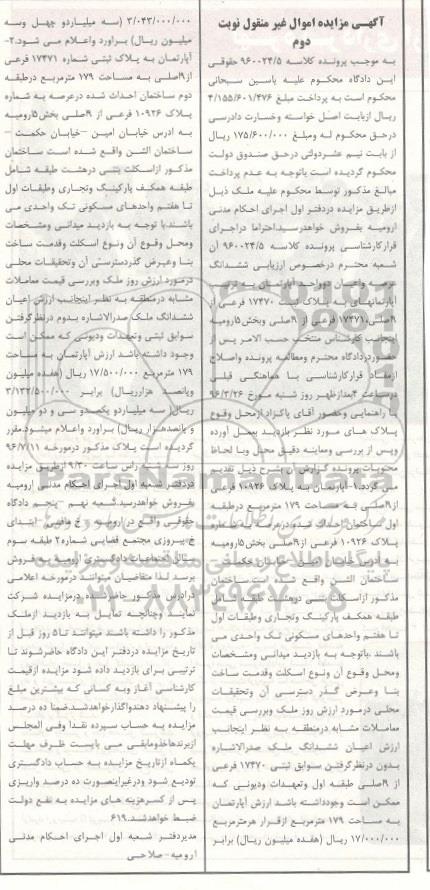 آگهی مزایده اموال غیر منقول نوبت
دوم
به موجب پرونده کلاسه ۹۶۰۰۲۴/۵ حقوقی
این دادگاه محکوم علیه یاسین سبحانی
محکوم است به پرداخت مبلغ ۴/۱۵۵/۶۰۱/۴۷۶
ریال ازبابت اصل خواسته وخسارت دادرسی
درحق محکوم له ومبلغ ۱۷۵/۶۰۰/۰۰۰ ریال
از بابت نیم عشردولتی درحق صندوق دولت
محکوم گردیده است باتوجه به عدم پرداخت
مبالغ مذکور توسط محکوم علیه ملک ذیل
ازطریق مزایده دردفتر اول اجرای احکام مدنی
ارومیه بفروش خواهدرسیداحتراما دراجرای
قرارکارشناسی پرونده کلاسه ۹۶۰۰۲۴/۵ آن
شعبه محترم درخصوص ارزیابی ششدانگ
عرصه واعیان دوواحد آپارتمان به
آپارتمانهای به پلاک ثبتی ۱۷۴۷۰ فرعی از
۹اصلی و۱۷۴۷۱ فرعی از ۹اصلی وبخش۵ارومیه
اینجانب کارشناس منتخب حسب الامر پس از
حضوردردادگاه محترم ومطالعه پرونده واصلاح
ازمفاد قرارکارشناسی با هماهنگی قبلی
درساعت ۴بعدازظهر روز شنبه مورخ ۹۶/۳/۲۶
با راهنمایی وحضور آقای پاکزاد ازمحل وقوع
پلاک های مورد نظر بازدید بعمل آورده
وپس از بررسی ومعاینه دقیق محل وبا لحاظ
محتویات پرونده گزارش آن بشرح ذیل تقدیم
می گردد.۱-آپارتمان به پلاک ۱۰۹۲۶ فرعی
از۹اصلی به مساحت ۱۷۹ مترمربع درطبقه
اول ساختمان احداث شده درعرصه به شماره
پلاک ۱۰۹۲۶ فرعی از ۹اصلی بخش۵ارومیه
به آدرس خیابان امین -خیابان حکمت -
ساختمان الشن واقع شده است.ساختمان
مذکور ازاسکلت بتنی درهشت طبقه شامل
طبقه همکف پارکینگ وتجاری وطبقات اول
تا هفتم واحدهای مسکونی تک واحدی می
باشند .باتوجه به بازدید میدانی ومشخصات
ومحل وقوع آن ونوع اسکلت وقدمت ساخت
بنا وعرض گذر دسترسی آن وتحقیقات
محلی درمورد ارزش روز ملک وبررسی قیمت
معاملات مشابه درمنطقه به نظر اینجانب
ارزش اعیان ششدانگ ملک صدرالاشاره
بدون درنظرگرفتن سوابق ثبتی ۱۷۴۷۰ فرعی
از ۹اصلی طبقه اول وتعهدات ودیونی که
ممکن است وجودداشته باشد ارزش آپارتمان
به مساحت ۱۷۹ مترمربع ازقرار هرمترمربع
۱۷/۰۰۰/۰۰۰ ریال (هفده میلیون ریال) برابر
۳/۰۴۳/۰۰۰/۰۰۰ (سه میلیاردو چهل وسه
میلیون ریال) برآورد واعلام می شود.۲-
آپارتمان به پلاک ثبتی شماره ۱۷۴۷۱ فرعی
از۹اصلی به مساحت ۱۷۹ مترمربع درطبقه
دوم ساختمان احداث شده درعرصه به شماره
پلاک ۱۰۹۲۶ فرعی از ۹اصلی بخش۵ارومیه
به ادرس خیابان امین -خیابان حکمت -
ساختمان الشن واقع شده است ساختمان
مذکور ازاسکلت بتنی درهشت طبقه شامل
طبقه همکف پارکینگ وتجاری وطبقات اول
تا هفتم واحدهای مسکونی تک واحدی می
باشند.با توجه به بازدید میدانی ومشخصات
ومحل وقوع آن ونوع اسکلت وقدمت ساخت
بنا وعرض گذردسترسی آن وتحقیقات محلی
درمورد ارزش روز ملک وبررسی قیمت معاملات
مشابه درمنطقه به نظر اینجانب ارزش اعیان
ششدانگ ملک صدرالاشاره بدوم درنظرگرفتن
سوابق ثبتی وتعهدات ودیونی که ممکن است
وجود داشته باشد ارزش آپارتمان به مساحت
۱۷۹ مترمربع ۱۷/۵۰۰/۰۰۰ ریال (هفده میلیون
وپانصد هزارریال) برابر ۳/۱۳۲/۵۰۰/۰۰۰
ریال( سه میلیاردو یکصدو سی و دو میلیون
و پانصدهزار ریال) برآورد واعلام میشود.مقرر
گردیده است پلاک مذکور درمورخه ۹۶/۷/۱۱
روز سه شنبه راس ساعت ۹/۳۰ ازطریق مزایده
دردفتر شعبه اول اجرای احکام مدنی ارومیه
بفروش خواهدرسید.شعبه نهم -پنجم دادگاه
حقوقی واقع در ارومیه -خ ابتدای
خ پیروزی مجتمع قضایی شماره۲ طبقه سوم
سالن اجتماعات دادگستری ارومیه به فروش
برسد لذا متقاضیان میتوانند درمورخه اعلامی
درآدرس مذکور حاضرشده درمزایده شرکت
نمایند وچنانچه تمایل به بازدید ازملک
مذکور را داشته باشند میتوانند تا۵ روز قبل از
تاریخ مزایده دردفتر این دادگاه حاضرشوند تا
ترتیبی برای بازدید داده شود مزایده ازقیمت
کارشناسی آغاز وبه کسانی که بیشترین مبلغ
را پیشنهاد دهندواگذارخواهدشد.ضمنا ده درصد
مزایده به حساب سپرده نقدا وفی المجلس
ازبرندهاخذومابقی می بایست ظرف مهلت
یکماه ازتاریخ مزایده به حساب دادگستری
تودیع شود ودرغیراینصورت ده درصد واریزی
پس از کسرهزینه های مزایده به نفع دولت
ضبط خواهدشد.۶۱۹
مدیردفتر شعبه اول اجرای احکام مدنی
ارومیه-صلاحی